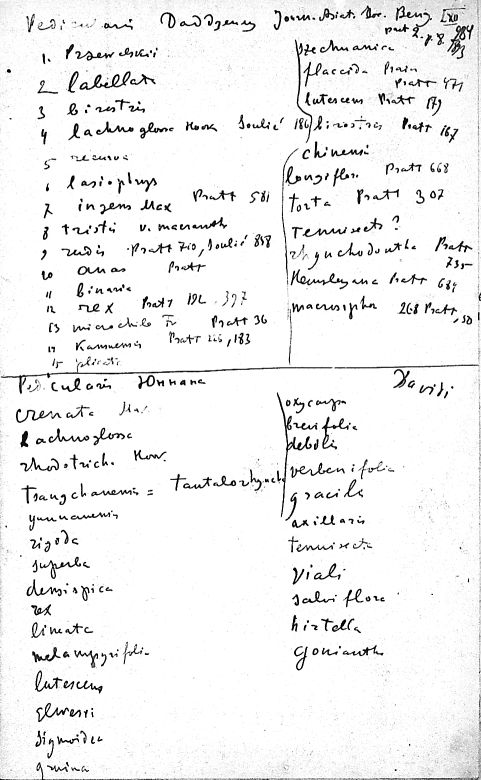 Pedicularis Journ. Asiat. Soc. Beng.
part 2. p. 8.
1. Przewalskii
2 labellata
3 birostris
4 lachnoglossa Hook Soulié 186
5 recurva
6 lasiophrys
7 ingens Max Pratt 581
8 tristis v. macrantha
9 rudis Pratt 710, Soulié 858
10 anas Pratt
11 binaria
12 rex Pratt 397
13 microchila Fr Pratt 36
14 Kansuensis Pratt 183
15 plicata
szechuanica
flaccida Prain
Pratt 471
lutescens Pratt 179
birostris Pratt 167
chinensis
longiflora Pratt 668
torta Pratt 307
tenuisecta ?
rhynchodonta Pratt
735
Hemsleyana Pratt 684
macrosipha 268 Pratt, 50
Pedicularis Юннана
crenata Max
Lachnoglossa
rhodotricha
Tsangchanensis = tantalorhyncha
yunnanensis
rigida
superba
densispica
rex
lineata
melampyrifolia
lutescens
elwesii
sigmoidea
gruina
Davidi
oxycarpa
brevifolia
debilis
verbenifolia
gracilis
axillaris
tenuisecta
Viali
salviflora
hirtella
goniantha